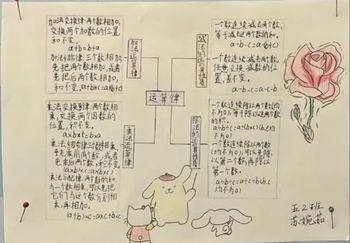 加法交换律:两个数相加,
交换两个加数的位置
和不变。
a+b=b+a
加法结合律:三个数相加
先把前两个数相加,或者
先把后两个数相加,
和不变。
加法的运算律
减法的运算性质
一个数连续减去两个数,
等于减这两个数的和。
a-b-c=a-(b+c)
一个数连续减两个数,
任意交换减数的位
置,差不变。
a-b-c=a-c-b
运算律
乘法的运算律
乘法交换律:两个数相
乘,交换两个因数的
位置,积不变。
a×b=b×a
乘法结合律:三个数相乘,
先乘前两个数,或者
先乘后两个数,积不变。
乘法分配律:两个数的和
与一个数相乘,可以先把
它们与这个数分别相
乘,再相加。
(a+b)×c=a×c+b×c
除法的运算性质
一个数连续除以两个数(
均不为0),等于除以这两个数
的积。
a÷b÷c=a÷(b×c)(b、c均
不为0)
一个数连续除以两个数
(均不为0),可以先除
以第二个数,再除以
第一个数。
a÷b÷c=a÷c÷b(b、c
均不为0)
五2班